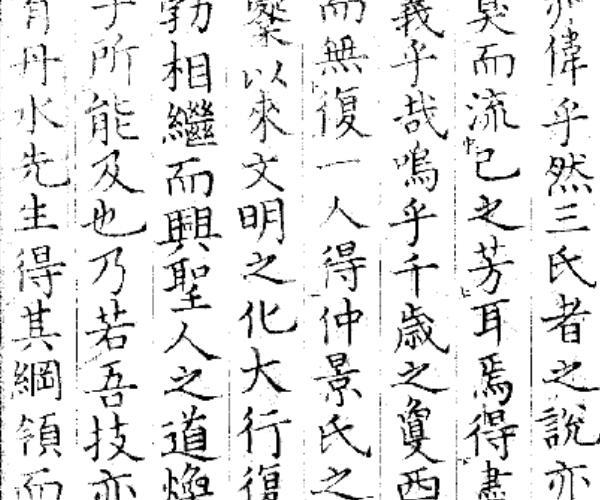 偉乎然三氏者之說亦
臭而流己之芳耳焉得盡
義乎哉嗚乎千歲之敻西
而無復一人得仲景氏之
以來文明之化大行復
勃相繼而興聖人之道煥
于所能及也乃若吾技亦
丹水先生得其綱領而